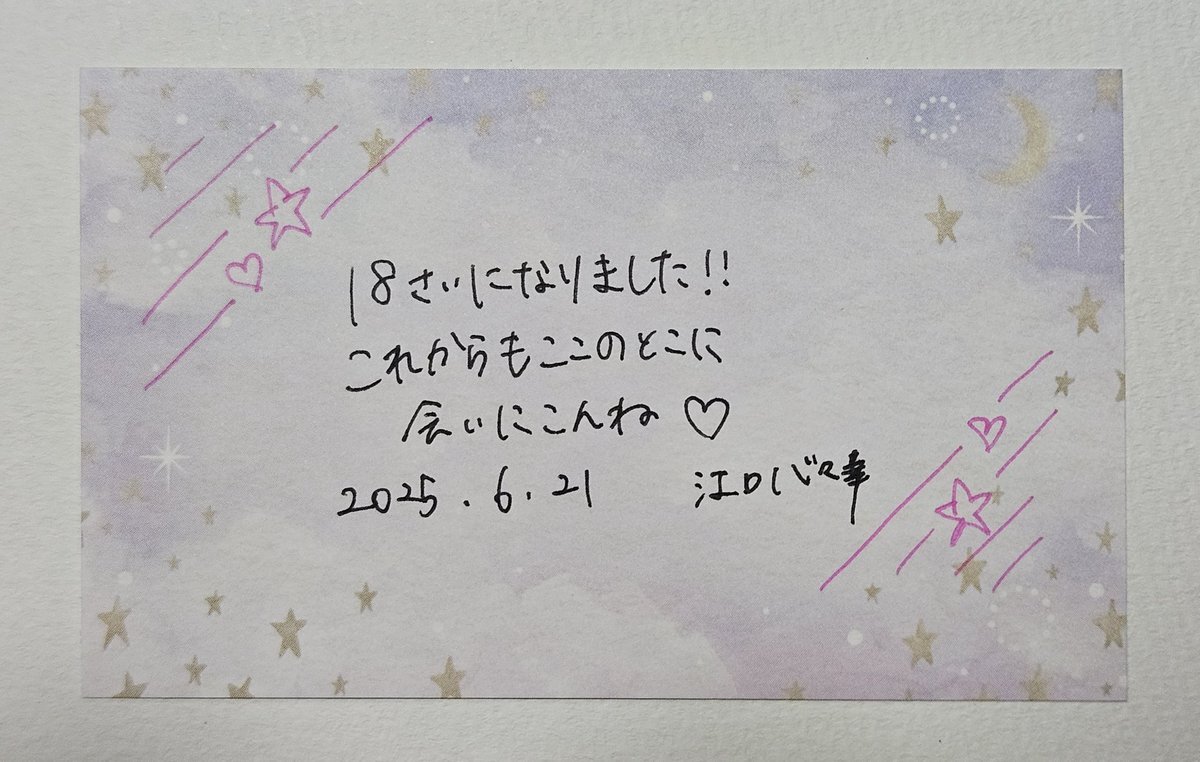 18さいになりました!!
これからもここのとこに
会いにこんね♡
2025.6.21 江口心々華